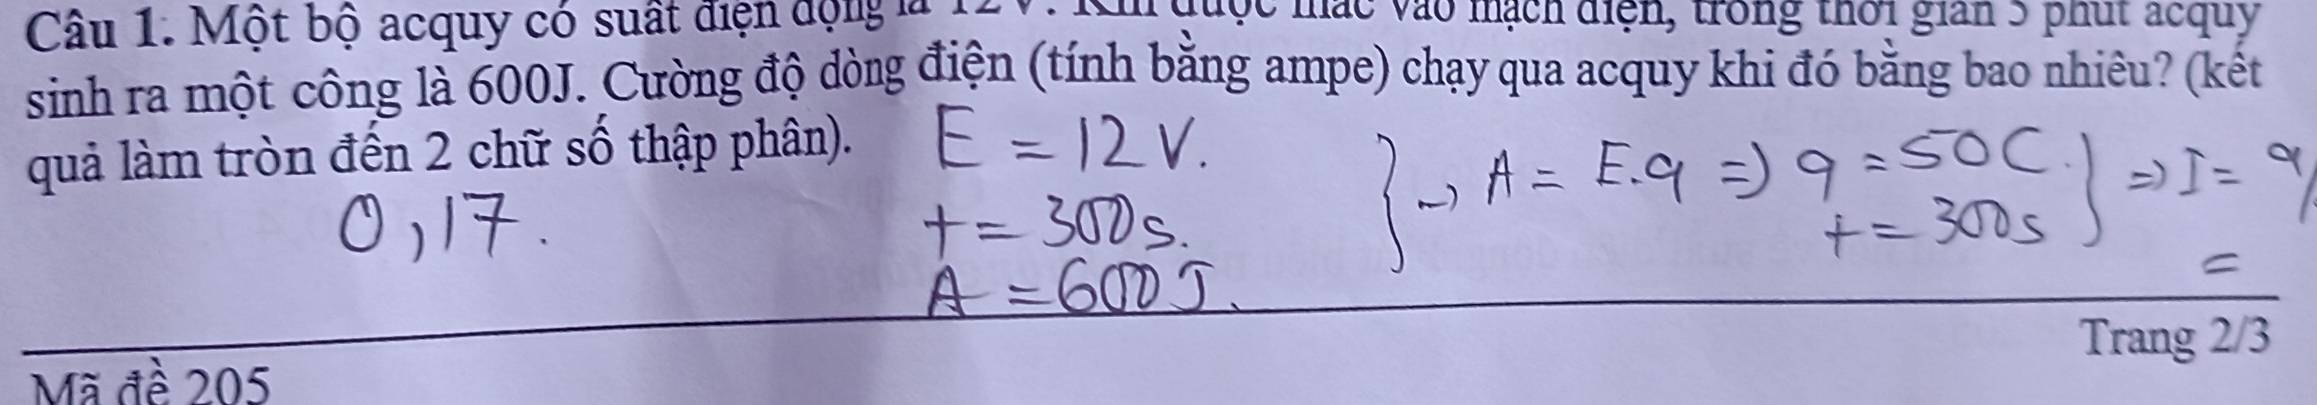 Câu 1: Một bộ acquy có suất điện động là 12 V. Khi được mắc vào mạch điện, trong thời gian 5 phút acquy
sinh ra một công là 600J. Cường độ dòng điện (tính bằng ampe) chạy qua acquy khi đó bằng bao nhiêu? (kết
quả làm tròn đến 2 chữ số thập phân).
0,17.
E = 12 V.
t = 300s.
A = 600J.
} → A = E.q => q = 50C.
t = 300s
} => I = q/
=
Trang 2/3
Mã đề 205